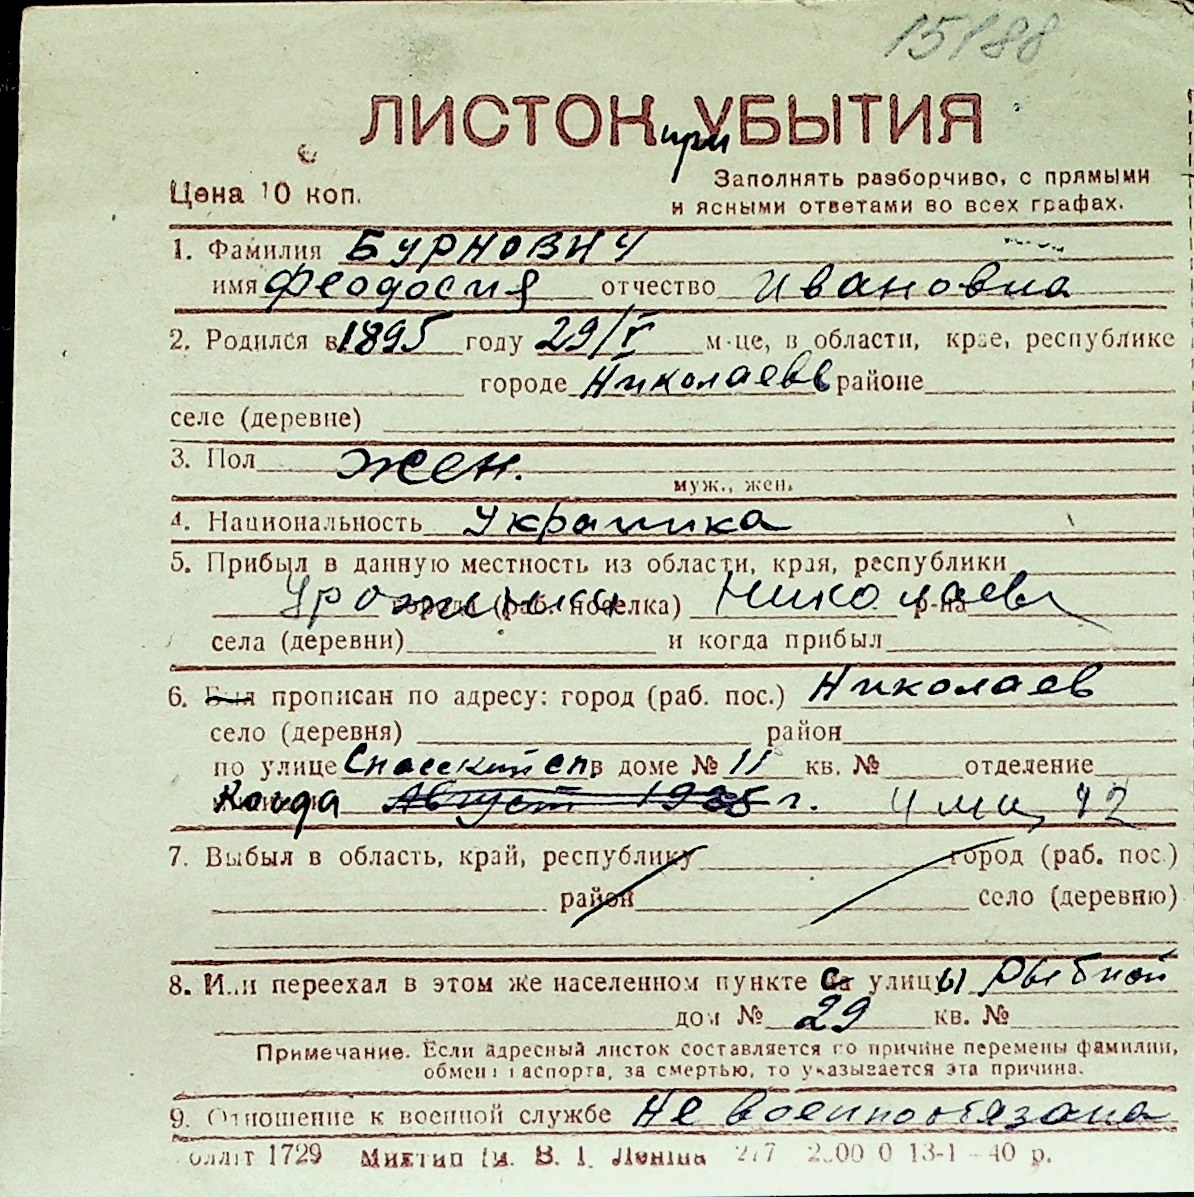 15188
ЛИСТОК при УБЫТИЯ
Цена 10 коп.
Заполнять разборчиво, с прямыми
и ясными ответами во всех графах.
1. Фамилия БУРНОВИЧ
имя Феодосия отчество Ивановна
2. Родился в 1895 году 29/V м-це, в области, крае, республике
городе Николаевв районе
селе (деревне)
3. Пол жен.
муж., жен.
4. Национальность украинка
5. Прибыл в данную местность из области, края, республики
Уроженка города (раб. поселка) Николаева р-на
села (деревни) и когда прибыл
6. Был прописан по адресу: город (раб. пос.) Николаев
село (деревня) район
по улице Спасский сп. в доме № 11 кв. № отделение
Когда Август 1935 г. 42
7. Выбыл в область, край, республику город (раб. пос.)
район село (деревню)
8. Или переехал в этом же населенном пункте с улицы Рыбной
дом № 29 кв. №
Примечание. Если адресный листок составляется по причине перемены фамилии,
обмена паспорта, за смертью, то указывается эта причина.
9. Отношение к военной службе Не военнообязана
1729 Миктип Ім. В. І. Леніна 13-1-40 р.